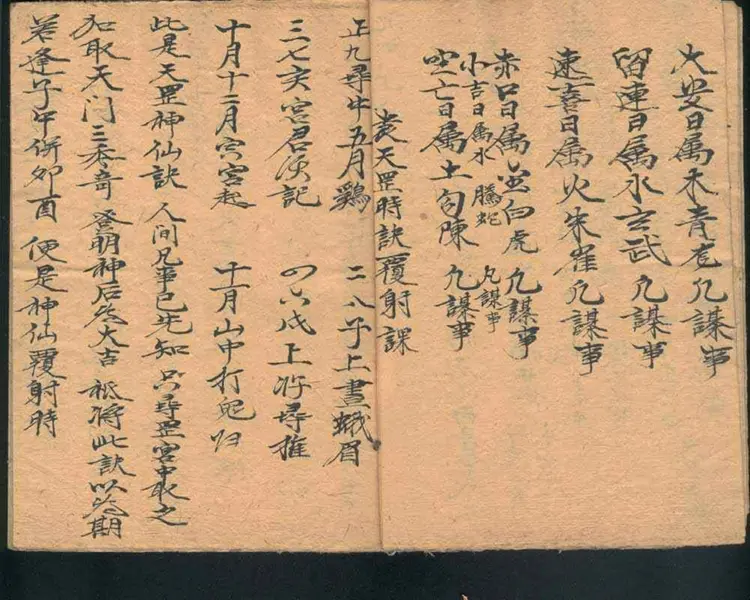 大安日属木青龙凡謀事
留連日属水玄武 凡謀事
速喜日属火朱雀凡謀事
赤口日属金白虎 凡謀事
小吉日属水 騰蛇 凡謀事
空亡日属土勾陳 凡謀事
袁天罡時訣覆射課
正九尋牛五月鷄 二八子上畫蛾眉
三七亥宮君須記 四六戌上將尋推
十月十二月 宮起 十一月山中打 归
此是天罡神仙訣 人间凡事已先知 只尋罡宮中取之
加取天门三 奇 登明神后 大吉 袛将此訣以 期
若逢子午併卯酉 便是神仙覆射時